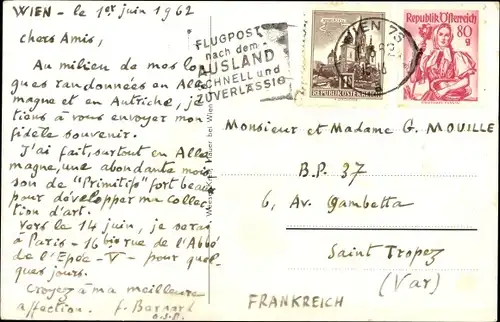 WIEN - le 1er juin 1962
chers Amis,
Au milieu de mes lon
gues randonnées en Alle
magne et en Autriche, je
tions à vous envoyer mon
fidèle souvenir.
J'ai fait, surtout en Alle
magne, une abondante mois
son de "Primitifs" fort beaux
pour développer ma collec
tion d'art.
Vers le 14 juin, je serai
à Paris - 16 bis rue de l'Abbé
de l'Epée - V - pour quel
ques jours.
Croyez à ma meilleure
affection. f. Bernard
o.s.B.
FLUGPOST
nach dem
AUSLAND
SCHNELL und
ZUVERLÄSSIG
WIEN 75
REPUBLIK ÖSTERREICH
Republik Österreich
80 g
bei Wien
Monsieur et Madame G. MOUILLE
B.P. 37
6, Av. Gambetta
Saint Tropez
(Var)
FRANKREICH